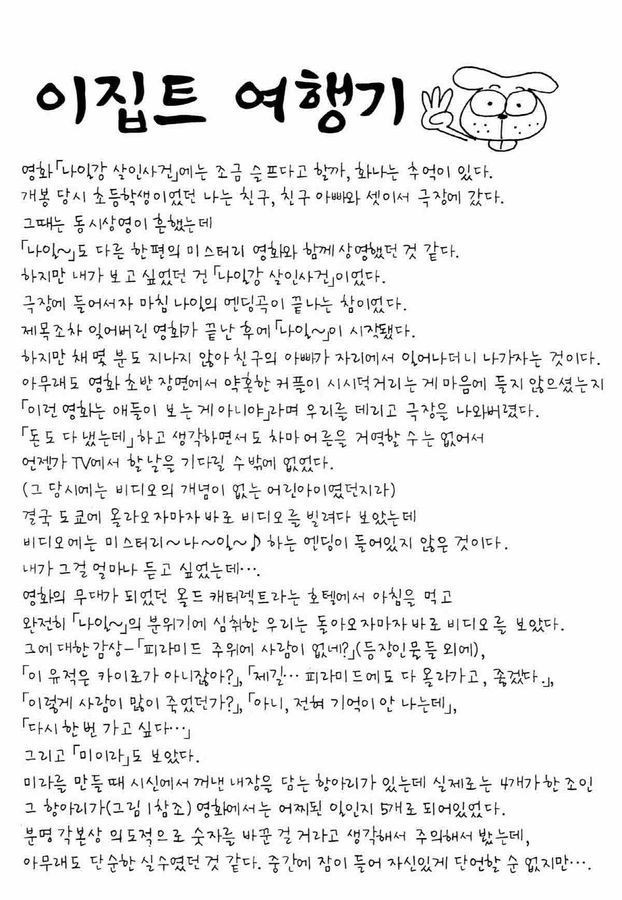 이집트 여행기
영화「나일강 살인사건」에는 조금 슬프다고 할까, 화나는 추억이 있다.
개봉 당시 초등학생이었던 나는 친구, 친구 아빠와 셋이서 극장에 갔다.
그때는 동시상영이 흔했는데
「나일~」도 다른 한편의 미스터리 영화와 함께 상영했던 것 같다.
하지만 내가 보고 싶었던 건 「나일강 살인사건」이었다.
극장에 들어서자 마침 나일의 엔딩곡이 끝나는 참이었다.
제목조차 잊어버린 영화가 끝난 후에 「나일~」이 시작됐다.
하지만 채 몇 분도 지나지 않아 친구의 아빠가 자리에서 일어나더니 나가자는 것이다.
아무래도 영화 초반 장면에서 약혼한 커플이 시시덕거리는 게 마음에 들지 않으셨는지
「이런 영화는 애들이 보는 게 아니야」라며 우리를 데리고 극장을 나와버렸다.
「돈도 다 냈는데」하고 생각하면서도 차마 어른을 거역할 수는 없어서
언젠가 TV에서 할 날을 기다릴 수 밖에 없었다.
(그 당시에는 비디오의 개념이 없는 어린아이였던지라)
결국 도쿄에 올라오자마자 바로 비디오를 빌려다 보았는데
비디오에는 미스터리~나~일~♪ 하는 엔딩이 들어있지 않은 것이다.
내가 그걸 얼마나 듣고 싶었는데….
영화의 무대가 되었던 올드 캐터렉트라는 호텔에서 아침을 먹고
완전히 「나일~」의 분위기에 심취한 우리는 돌아오자마자 바로 비디오를 보았다.
그에 대한 감상-「피라미드 주위에 사람이 없네?」(등장인물들 외에),
「이 유적은 카이로가 아니잖아?」, 「제길… 피라미드에도 다 올라가고, 좋겠다.」,
「이렇게 사람이 많이 죽었던가?」, 「아니, 전혀 기억이 안 나는데」,
「다시 한번 가고 싶다…」
그리고 「미이라」도 보았다.
미라를 만들 때 시신에서 꺼낸 내장을 담는 항아리가 있는데 실제로는 4개가 한 조인
그 항아리가(그림 1 참조) 영화에서는 어찌된 일인지 5개로 되어있었다.
분명 각본상 의도적으로 숫자를 바꾼 걸 거라고 생각해서 주의해서 봤는데,
아무래도 단순한 실수였던 것 같다. 중간에 잠이 들어 자신있게 단언할 순 없지만….